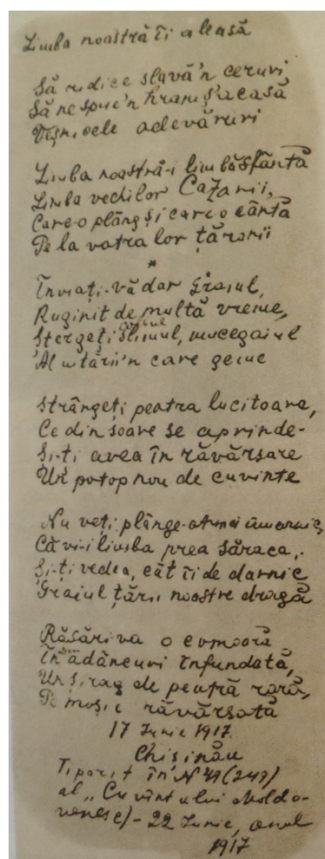 Limba noastră îi aleasă
Să ridice slavă'n ceruri,
Să ne spue'n hram ș'acasă
Veșnicele adevăruri
Limba noastră-i limbă sfântă
Limba vechilor Cazanii,
Care-o plâng și care o cântă
Pe la vatra lor țăranii
*
Înviați-vă dar graiul,
Ruginit de multă vreme,
Ștergeți slinul, mucegaiul
Al uitării'n care geme
Strângeți peatra lucitoare,
Ce din soare se aprinde-
Și-ți avea în răvărsare
Un potop nou de cuvinte
Nu veți plânge-atunci amarnic,
Că vi-i limba prea săraca,
Și-ți vedea, cât îi de darnic
Graiul țării noastre dragă
Răsări va o comoară
În adâncuri înfundată,
Un șirag de peatră rară,
Pe moșie răvărsată
17 Iunie 1917.
Chișinău
Tiparit în N 49 (249)
al „Cuvîntului Moldo-
venesc/- 22 Iunie, anul
1917